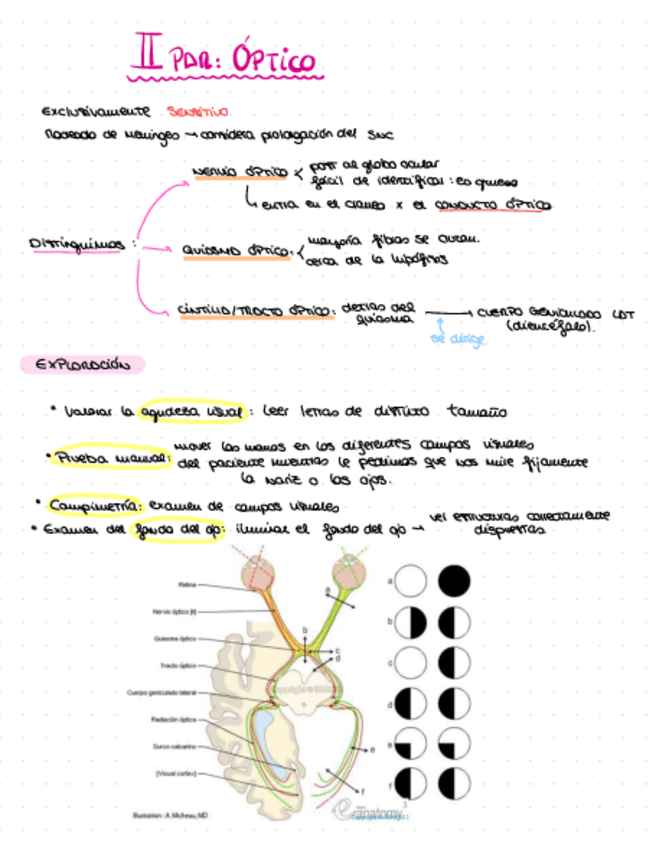 II PAR: ÓPTICO
EXCLUSIVAMENTE SENSITIVO
Rodeado de meninges → considera prolongación del SNC
NERVIO ÓPTICO < post al globo ocular
fácil de identificar: es grueso
↳ entra en el cráneo x el CONDUCTO ÓPTICO
DISTINGUIMOS:
QUIASMO ÓPTICO: < mayoría fibras se cruzan.
cerca de la hipófisis
CINTILLA/TRACTO ÓPTICO: detrás del quiasma → CUERPO GENICULADO LAT
(diencéfalo).
se dirige
EXPLORACIÓN
• Valorar la agudeza visual: Leer letras de distinto tamaño
• Prueba manual: mover las manos en los diferentes campos visuales
del paciente mientras le pedimos que nos mire fijamente
la nariz o los ojos.
• Campimetría: examen de campos visuales
• Examen del fondo del ojo: iluminar el fondo del ojo → ver estructuras correctamente
dispuestas
Retina
Nervio óptico [II]
Quiasma óptico
Tracto óptico
Cuerpo geniculado lateral
Radiación óptica
Surco calcarino
[Visual cortex]
a
b
c
d
e
f
a
b
c
d
e
f
Illustration : A. Micheau, MD
e-anatomy